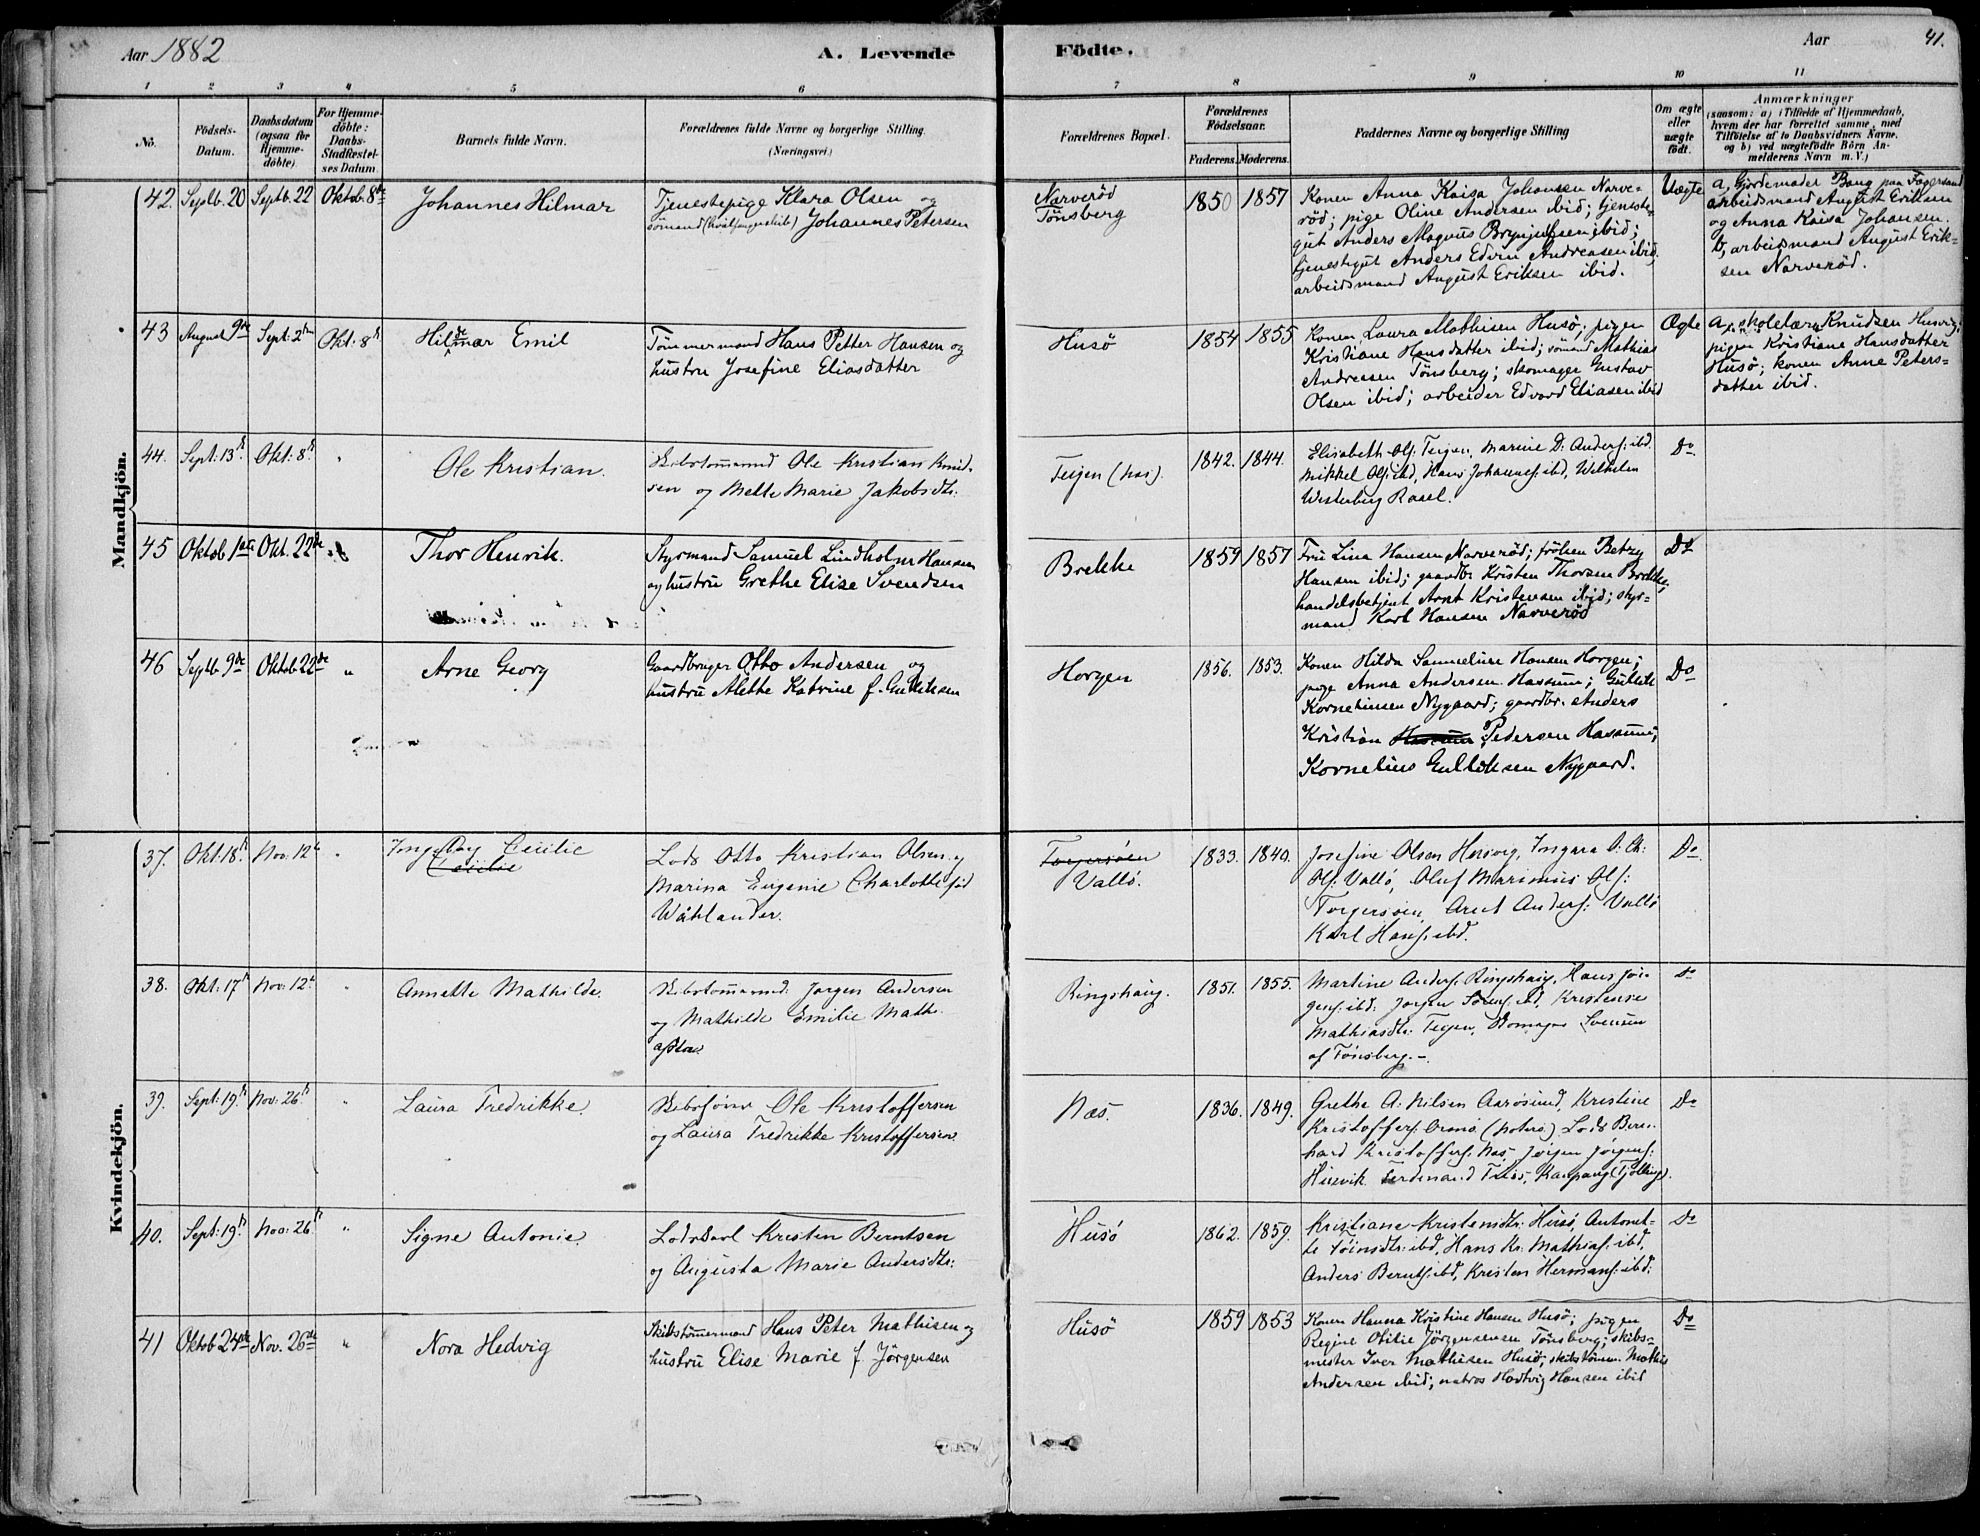 Aar 1882
A. Levende
Födte.
Aar
41.
1 2 3 4 5 6 7 8 9 10 11
No.
Födsels-Datum.
Daabsdatum (ogsaa for Hjemmedöbte).
For Hjemmedöbte: Daabs-Stadfæstelses Datum.
Barnets fulde Navn.
Forældrenes fulde Navne og borgerlige Stilling.
(Næringsvei.)
Forældrenes Bopæl.
Forældrenes Födselsaar.
Faderens. Moderens.
Faddernes Navne og borgerlige Stilling
Om ægte eller uægte födt.
Anmærkninger
(saasom: a) i Tilfælde af Hjemmedaab,
hvem der har forrettet samme, med
Tilföielse af to Daabsvidners Navne,
og b) ved uægtefödte Börn An-
melderens Navn m. V.)
Mandkjön.
42. Septb. 20 Septb. 22 Oktob. 8de
Johannes Hilmar
Tjenestepige Klara Olsen og
sømand (hvalfangerskib) Johannes Petersen
Narverød
Tønsberg
1850 1857
Konen Anna Kaisa Johansen Narve-
rød; pige Oline Andersen ibid; tjeneste-
gut Anders Magnus Brynjulfsen ibid;
tjenestegut Anders Edvin Andreasen ibid,
arbeidsmand August Eriksen ibid.
Uægte
a, Gjordemoder Bang paa Fagersand
arbeidsmand August Eriksen
og Anna Kaisa Johansen.
b, arbeidsmand August Erik-
sen Narverød.
43 August 9de Sept: 2den Okt: 8de
Hilmar Emil
de
Tømmermand Hans Petter Hansen og
hustru Josefine Eliasdatter
Husø
1854 1855
Konen Laura Mathisen Husø; pigen
Kristiane Hansdatter ibid; sømand Mathias
Andreasen Tønsberg; skomager Gustav
Olsen ibid; arbeider Edvard Eliasen ibid
Ægte
a, skolelærer Knudsen Husvig;
pigen Kristiane Hansdatter
Husø; konen Anne Peters-
datter ibid.
44. Sept: 13de Okt: 8de "
Ole Kristian.
Skibstømmermd Ole Kristian Knud-
sen og Mette Marie Jakobsdtr:
Teijen (næs).
1842. 1844.
Elisabeth Ols: Teijen, Marine D: Anders: ibd.
Mikkel Ols: ibd, Hans Johannes: ibd, Wilhelm
Westerberg Rasel.
Do
45 Oktob 1ste Okt. 22de "
Thor Henrik.
Styrmand Samuel Lindholm Hansen
og hustru Grethe Elise Svendsen
Brekke
1859 1857
Fru Lina Hansen Narverød; frøken Betzy
Hansen ibid; gaardbr Kristen Thorsen Brekke;
handelsbetjent Arnt Kristensen ibid; styr-
mand Karl Hansen Narverød
Do
46 Septb. 9de Oktob. 22de "
Arne Georg
Gaardbruger Otto Andersen og
hustru Alette Katrine f. Gulliksen
Horgen
1856. 1853.
Konen Hilda Samueline Hansen Horgen;
pige Anna Andersen Hassum; Gullik
Korneliusen Nygaard; gaardbr. Anders
Kristian Hassum Pedersen Hassum;
Kornelius Gulliksen Nygaard.
Do
Kvindekjön.
37. Okt: 18de Nov: 12te "
Ingeborg Cecilie
Cecilie
Lods Otto Kristian Olsen og
Marina Eugenie Charlotte fød
Wåhlander.
Torgersøen
Vallø.
1833. 1840.
Josefine Olsen Husvig, Ingara O: Ch:
Ols: Vallø, Oluf Marinius Ols:
Torgersøen, Arnt Anders: Vallø
Karl Hans: ibd.
Do
38. Okt: 17de Nov: 12te "
Annette Mathilde.
Skibstømmermd: Jørgen Andersen
og Mathilde Emilie Math-
Ringshaug.
1851. 1855.
Martine Anders: Ringshaug, Hans Jør-
gens: ibd. Jørgen Sørens: ibd, Kristense
Mathiasdtr: Teijen, Skomager Svensen
af Tønsberg. –
do
39. Sept: 19de Nov: 26de "
Laura Fredrikke.
Skibsfører Ole Kristoffersen
og Laura Fredrikke Kristoffersen
Næs.
1836. 1849.
Grethe A: Nilsen Aarøsund, Kristine
Kristoffers: Ormø (Nøterø). Lods Bern-
hard Kristoffers: Næs, Jørgen Jørgens:
Husvik Ferdinand Friis, Kaupang (Tjølling).
Do
40. Sept: 19de Nov: 26de "
Signe Antonie.
Lodskarl Kristen Berntsen
og Augusta Marie Andersdtr:
Husø
1862. 1859.
Kristiane Kristensdtr: Husø, Antonet-
te Tøinsdtr: ibd, Hans Kr: Mathias: ibd,
Anders Bernts: ibd, Kristen Hermans: ibd:
Do
41 Oktob 24de Nov. 26de "
Nora Hedvig
Skibstømmermand Hans Peter Mathisen og
hustru Elise Marie f. Jørgensen
Husø
1859 1853
Konen Hanna Kristine Hansen Husø; pigen
Regine Otilie Jørgensen Tønsberg; skibs-
mester Iver Mathisen Husø; skibstømm. Mathis
Andersen ibid; matros Hartvig Hansen ibid
Do